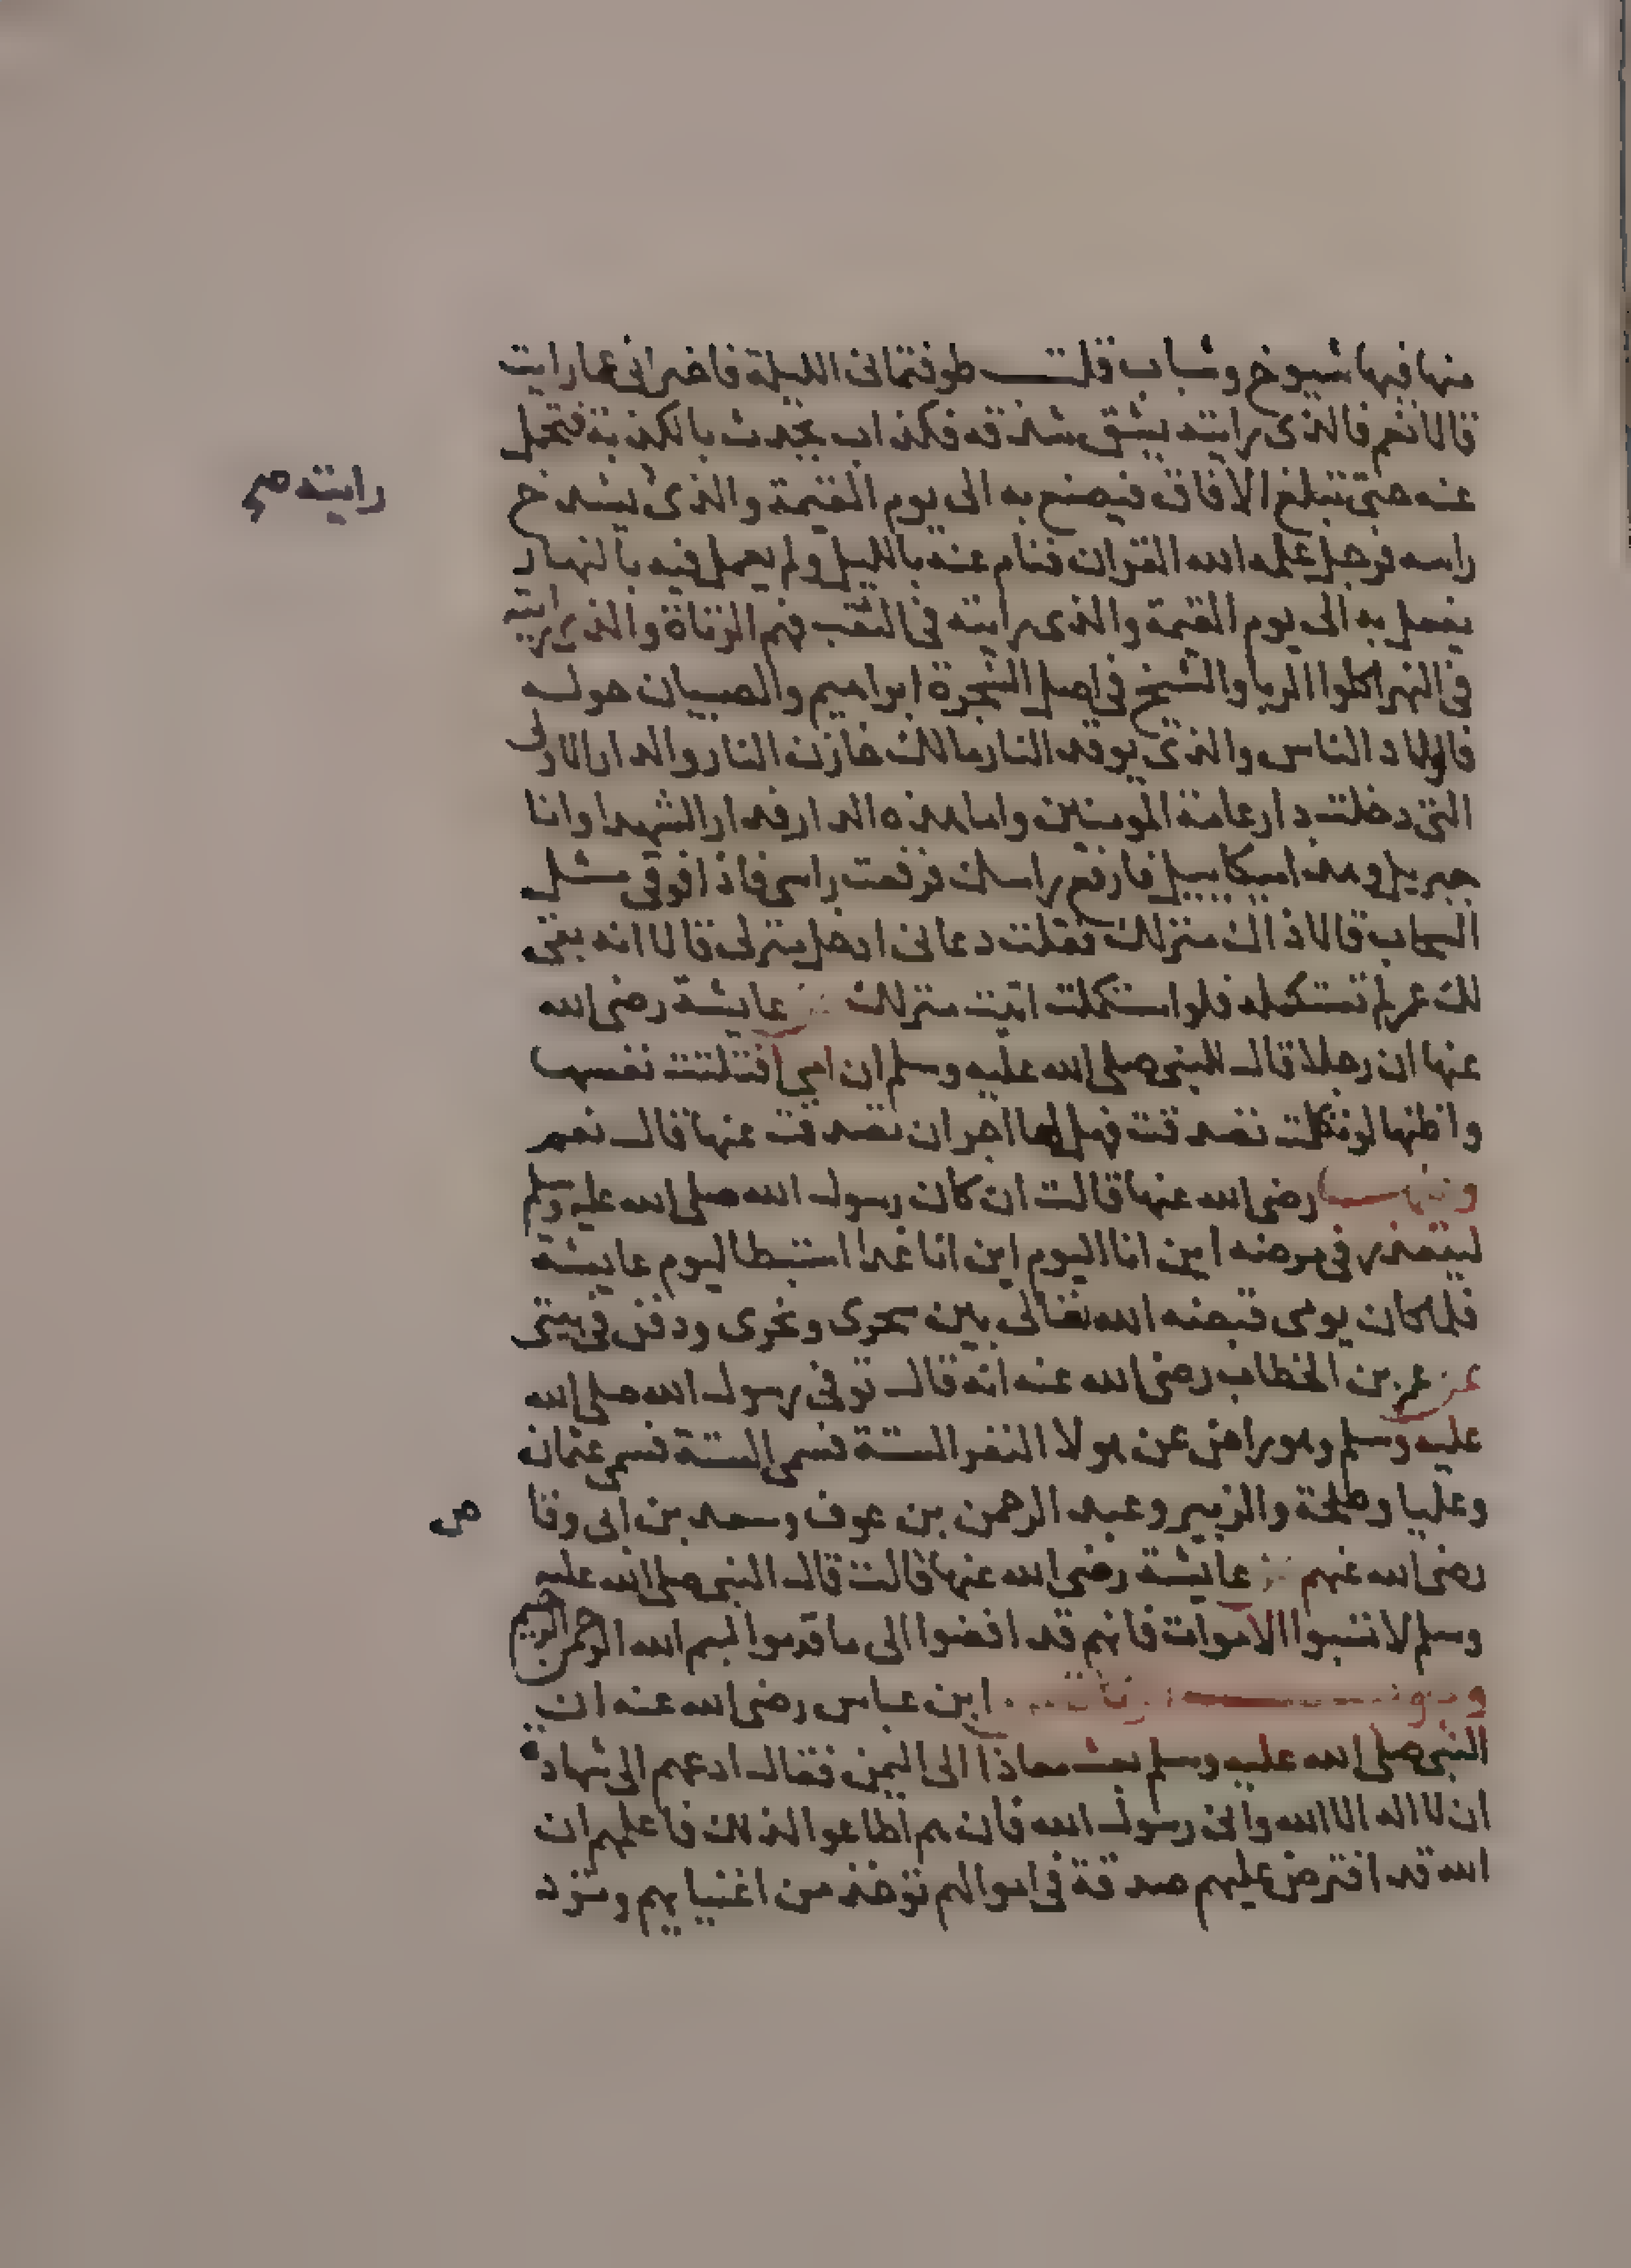 منها فيها شيوخ وشباب قلت طوفتمانى الليلة فاخبرانى عما رايت
قالا نعم فالذى رايته يشق شدقه فكذاب يحدث بالكذبة فتحمل
عنه حتى تبلغ الافاق فيصنع به الى يوم القيمة والذى يشدخ
رايته صح
راسه فرجل علمه الله القران فنام عنه بالليل ولم يعمل فيه بالنهار
يفعل به الى يوم القيمة والذى رايته فى الثقب فهم الزناة والذى رايته
فى النهر اكلوا الربا والشيخ فى اصل الشجرة ابراهيم والصبيان حوله
فاولاد الناس والذى يوقد النار مالك خازن النار والدار الاولى
التى دخلت دار عامة المومنين واما هذه الدار فدار الشهدا وانا
جبريل وهذا ميكاييل فارفع راسك فرفعت راسى فاذا فوقى مثل
السحاب قالا ذاك منزلك فقلت دعانى ادخل منزلى قالا انه بقى
لك عمر لم تستكمله فلو استكملت اتيت منزلك عن عايشة رضى الله
عنها ان رجلا قال للنبى صلى الله عليه وسلم ان امى افتلتت نفسها
واظنها لو تكلمت تصدقت فهل لها اجر ان تصدقت عنها قال نعم
وعنها رضى الله عنها قالت ان كان رسول الله صلى الله عليه وسلم
ليتعذر فى مرضه اين انا اليوم اين انا غدا استبطا ليوم عايشة
فلما كان يومى قبضه الله تعالى بين سحرى ونحرى ودفن فى بيتى
عن عمر بن الخطاب رضى الله عنه انه قال توفى رسول الله صلى الله
عليه وسلم وهو راض عن هولا النفر الستة فسمى الستة فسمى عثمان
وعليا وطلحة والزبير وعبد الرحمن بن عوف وسعد بن ابى وقا
ص
رضى الله عنهم عن عايشة رضى الله عنها قالت قال النبى صلى الله عليه
وسلم لا تسبوا الاموات فانهم قد افضوا الى ما قدموا بسم الله الرحمن الرحيم
ابن عباس رضى الله عنه ان
النبى صلى الله عليه وسلم بعث معاذا الى اليمن فقال ادعهم الى شهادة
ان لا اله الا الله وانى رسول الله فان هم اطاعوا لذلك فاعلمهم ان
الله قد افترض عليهم صدقة فى اموالهم توخذ من اغنيايهم وترد